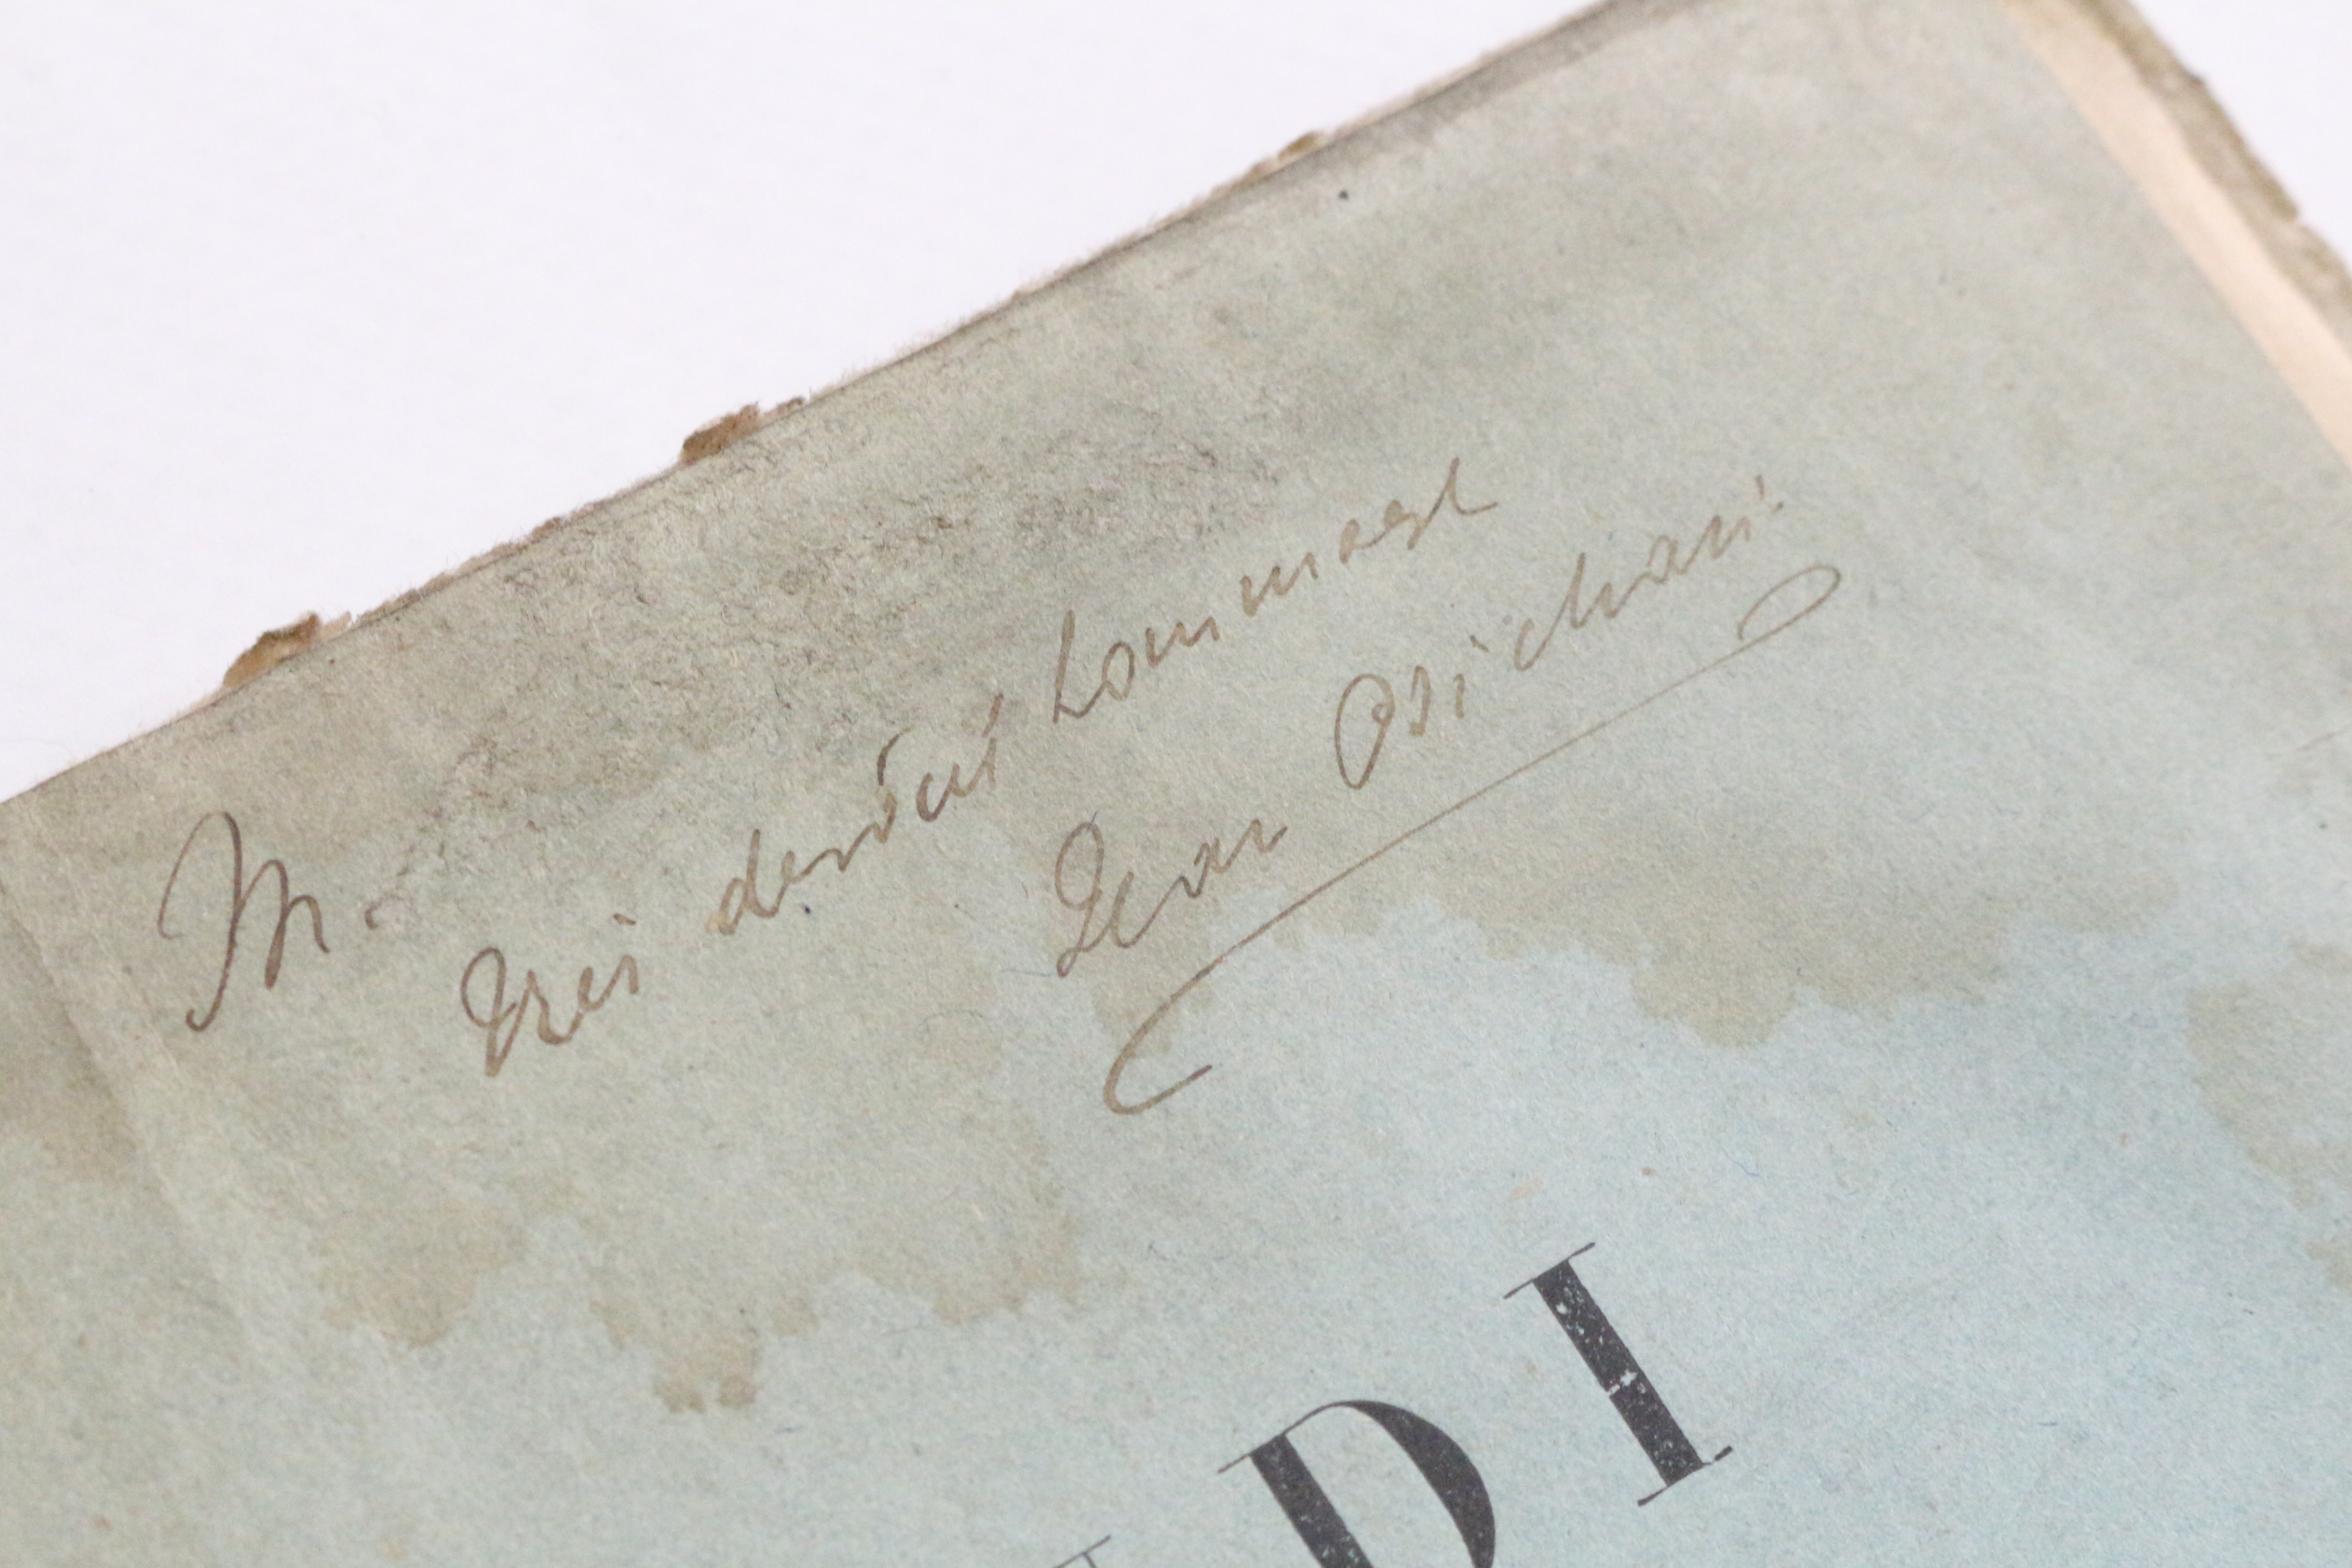 M.
Très dévoué hommage
Jean Psichari
DI